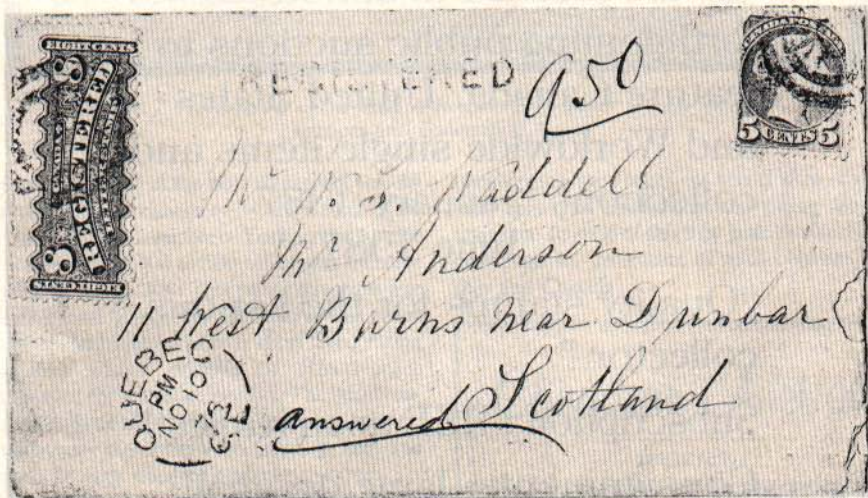 EIGHT CENTS
8 REGISTERED 8
REGISTERED
950
5 CENTS 5
Mr W. S. Waddell
Mr Anderson
11 West Barns near Dunbar
Scotland
answered
QUEBEC
PM
NO 10